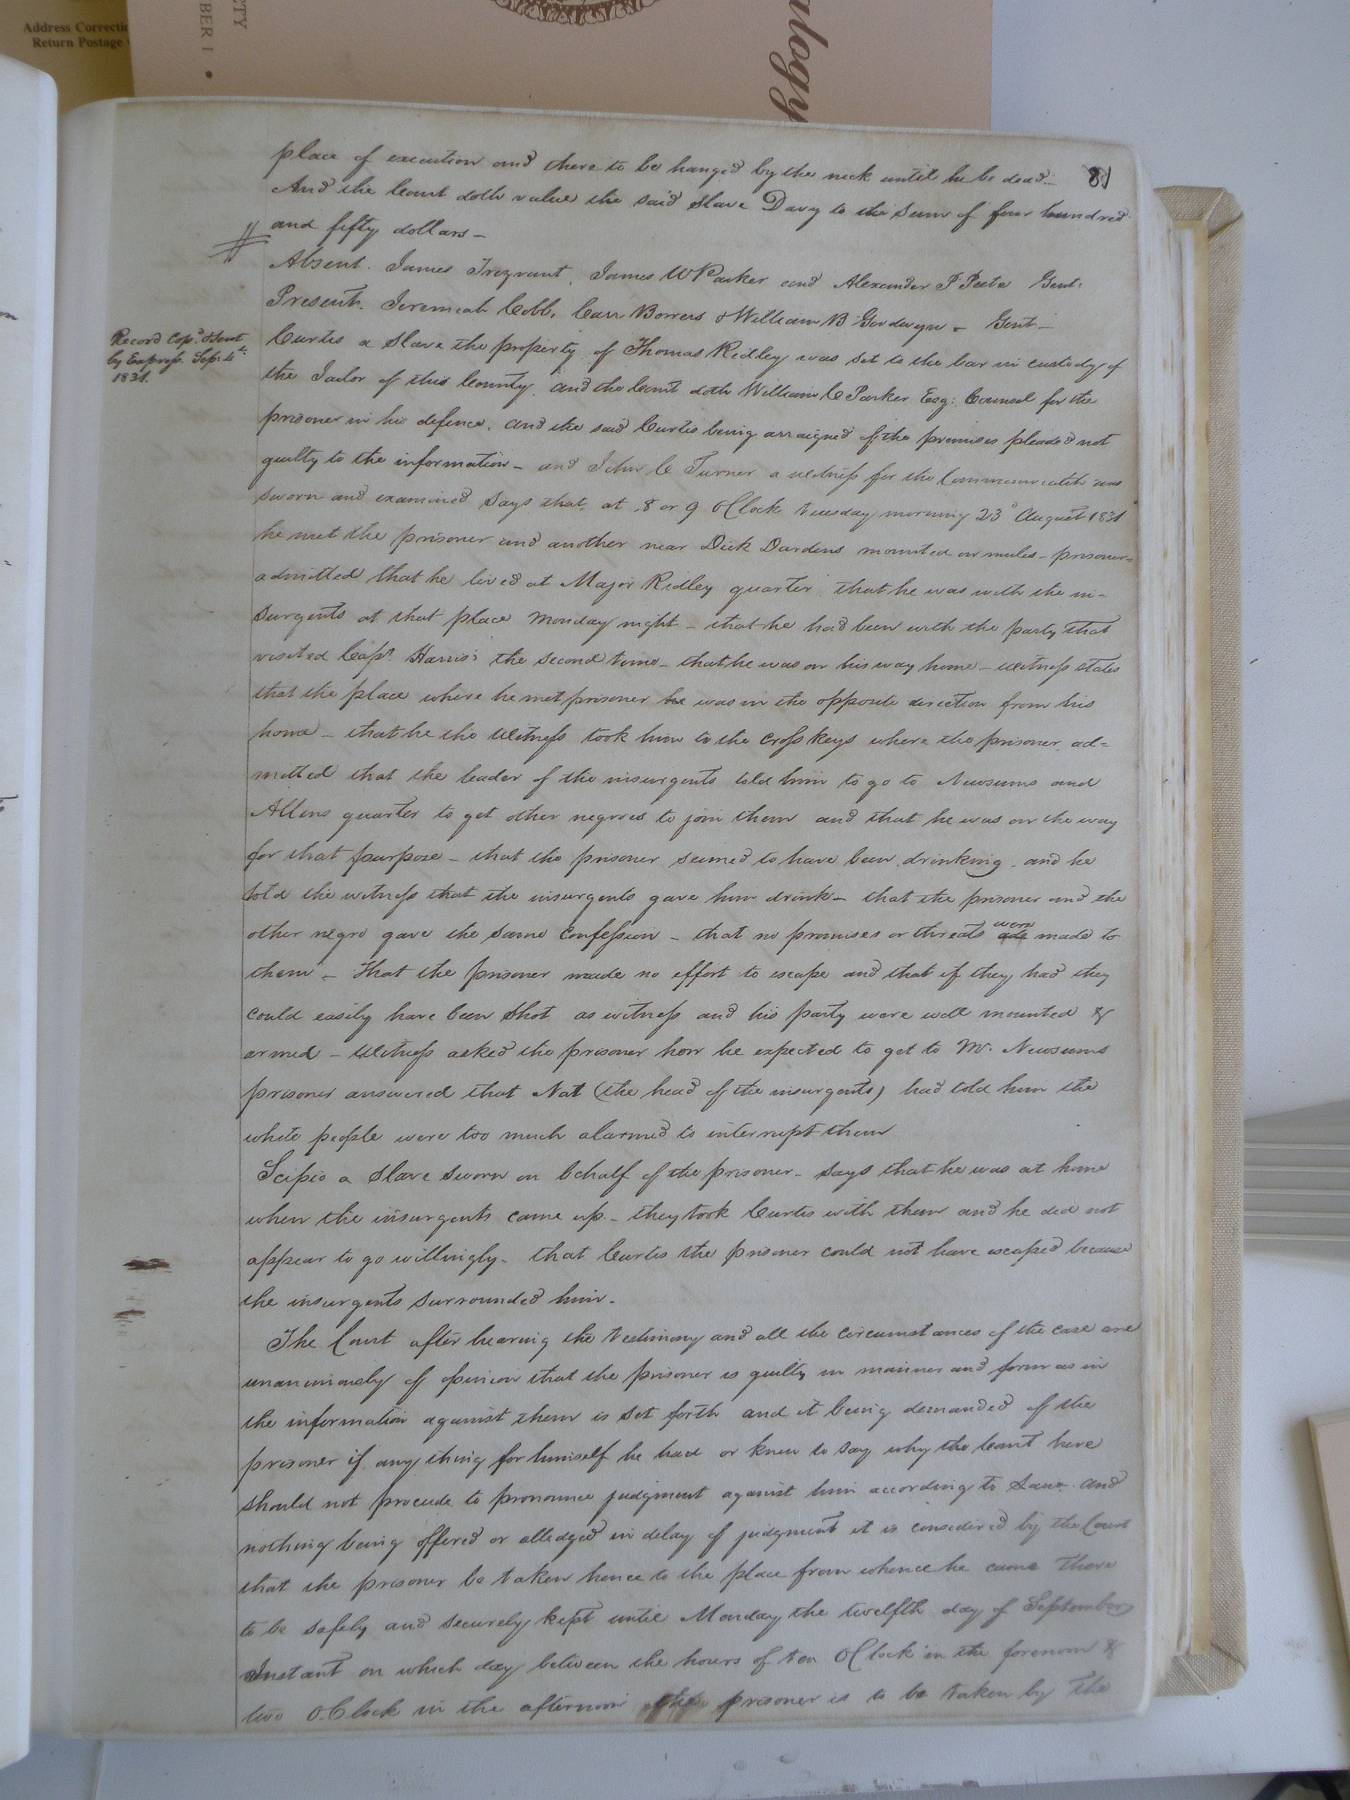 Address Correctio
Return Postage
ETY
BER 1 •
alogy
81
place of execution and there to be hanged by the neck until he be dead—
And the Court doth value the said slave Davy to the sum of four hundred
and fifty dollars—
Absent. James Trezvant, James W Parker and Alexander P Peete Gent.
Present. Jeremiah Cobb, Carr Bowers & William B Goodwyn – Gent—
Record Cop.d & Sent
by Express Sep: 4th
1831.
Curtis a slave the property of Thomas Ridley was set to the bar in custody of
the Jailor of this County, and the Court doth William C Parker Esq: Counsel for the
prisoner in his defence, and the said Curtis being arraigned of the premises pleaded not
guilty to the information – and John C Turner a witness for the Commonwealth was
sworn and examined says that, at 8 or 9 OClock tuesday morning 23d August 1831
he met the prisoner and another near Dick Dardens mounted on mules – prisoner
admitted that he lived at Major Ridley quarter, that he was with the in-
surgents at that place Monday night – that he had been with the party that
visited Capt Harris's the second time – that he was on his way home – witness states
that the place where he met prisoner he was in the opposite direction from his
home – that he the witness took him to the Cross Keys where the prisoner ad=
mitted that the leader of the insurgents told him to go to Newsums and
Allens quarter to get other negroes to join them and that he was on the way
for that purpose – that the prisoner seemed to have been drinking and he
told the witness that the insurgents gave him drink – that the prisoner and the
other negro gave the same confession – that no promises or threats were made to
them – That the prisoner made no effort to escape and that if they had they
could easily have been shot as witness and his party were well mounted &
armed – Witness asked the prisoner how he expected to get to Mr. Newsums
prisoner answered that Nat (the head of the insurgents) had told him the
white people were too much alarmed to interrupt them
Scipio a slave sworn on behalf of the prisoner – says that he was at home
when the insurgents came up – they took Curtis with them and he did not
appear to go willingly – that Curtis the prisoner could not have escaped because
the insurgents surrounded him –
The Court after hearing the testimony and all the circumstances of the case are
unanimously of opinion that the prisoner is guilty in manner and form as in
the information against them is set forth and it being demanded of the
prisoner if any thing for himself he had or knew to say why the Court here
should not procede to pronounce judgment against him according to Law and
nothing being offered or alledged in delay of judgment it is considered by the Court
that the prisoner be taken hence to the place from whence he came there
to be safely and securely kept until Monday the twelfth day of September
Instant on which day between the hours of ten OClock in the forenoon &
two O.Clock in the afternoon the prisoner is to be taken by the